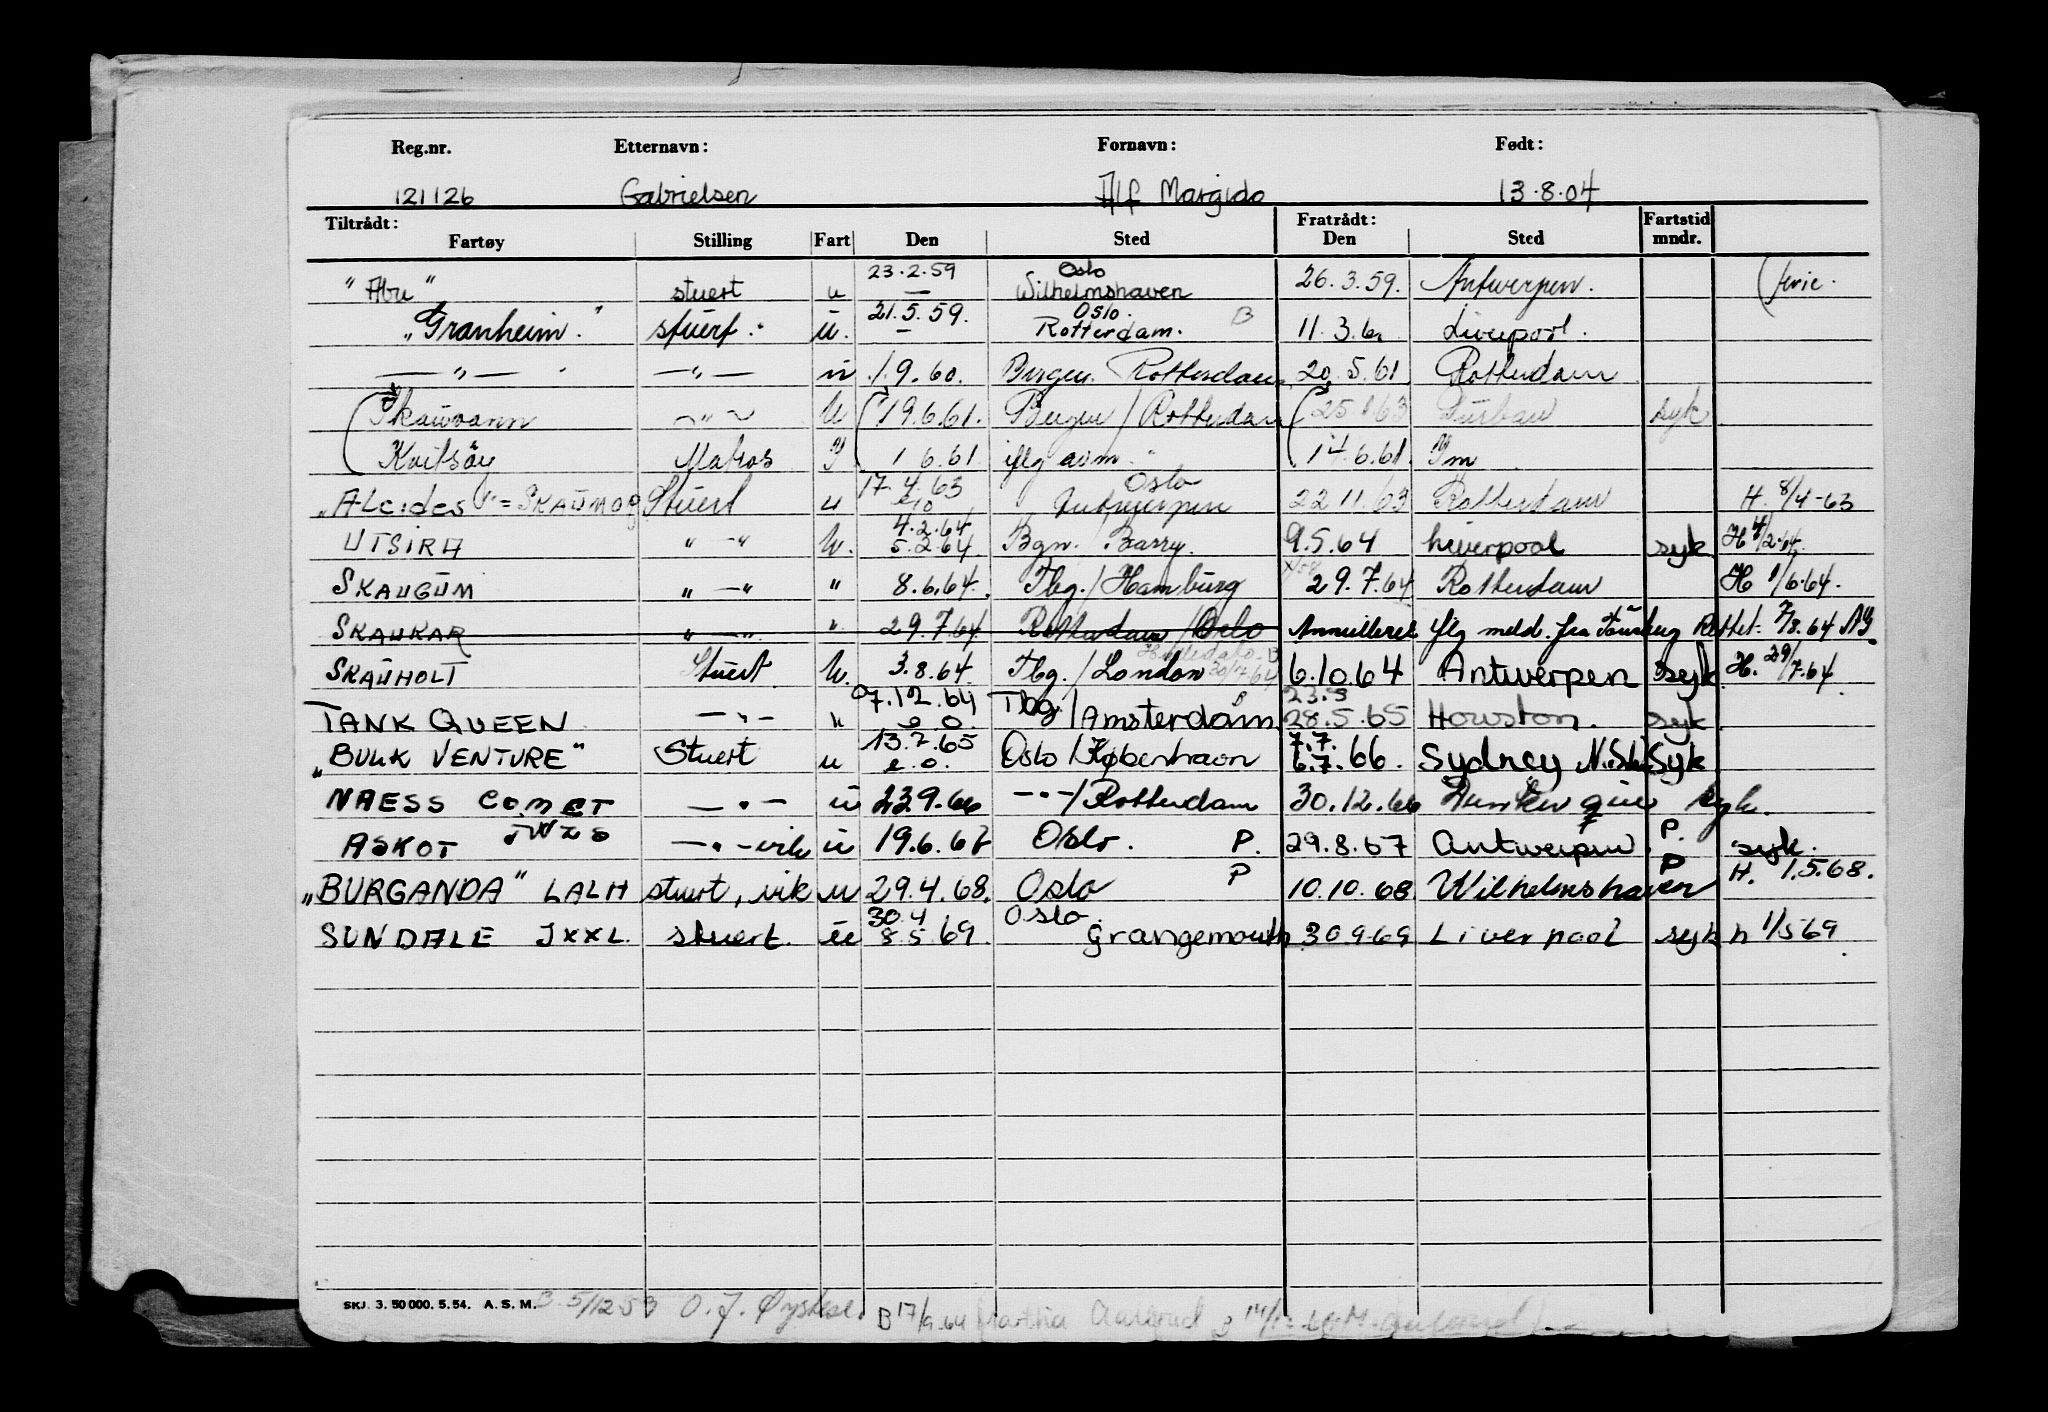 Reg.nr. Etternavn: Fornavn: Født:
121126 Gabrielsen Alf Margido 13.8.04
Tiltrådt: Fratrådt: Fartstid
Fartøy Stilling Fart Den Sted Den Sted mndr.
"Abu" stuert u 23.2.59 — Oslo Wilhelmshaven 26.3.59. Antwerpen.
"Granheim." stuert. u. 21.5.59. — Oslo. Rotterdam. B 11.3.60 Liverpool.
— " — — " — u 1.9.60. Bergen. Rotterdam 20.5.61 Rotterdam
(Skauvann — " — u (19.6.61. Bergen / Rotterdam (25.1.63 Durban syk
Kvitsöy Matros 1 6.61 iflg avm. 14.6.61.
"Alcides" = SKAUMOG Stuert u 17.4.63 Oslo Antwerpen 22 11.63 Rotterdam H. 8/4-63
UTSIRA " — " U. 4.2.64 5.2.64 Bgn. / Barry. 9.5.64 Liverpool syk H 4/2.64.
SKAUGUM " — " " 8.6.64. Tbg. / Hamburg 29.7.64 Rotterdam H 1/6.64.
SKAUKAR " — " " 29.7.64 Rotterdam / Oslo Annulleret iflg meld. fra Tønsberg 7/8.64
SKAUHOLT Stuert U. 3.8.64. Tbg. / London 30/7.64 6.10.64 Antwerpen syk. H. 29/7.64
TANK QUEEN — " — " 7.12.64 e.o. Tbg. / Amsterdam B 23.5 28.5.65 Houston. syk
"BULK VENTURE" Stuert u 13.7.65 e.o. Oslo / København 7.7. 6.7.66. Sydney Syk
NAESS COMET — " — u 22.9.66 — " — / Rotterdam 30.12.66 Dunkerque syk.
ASKOT JWZS — " — vik u 19.6.67 Oslo. P. 29.8.67 Antwerpen P. syk.
"BURGANDA" LALH stuert, vik u 29.4.68. Oslo P 10.10.68 Wilhelmshaven P H. 1.5.68.
SUNDALE JXXL stuert. u 30.4 8.5.69. Oslo. Grangemouth 30969 Liverpool syk h 1/5 69
SKJ. 3. 50 000. 5. 54. A. S. M. B 5/12 53 O. J. B 17/9.64